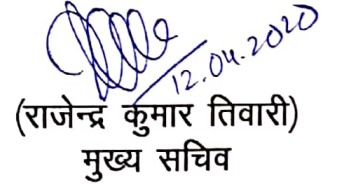 12.04.2020
(राजेन्द्र कुमार तिवारी)
मुख्य सचिव